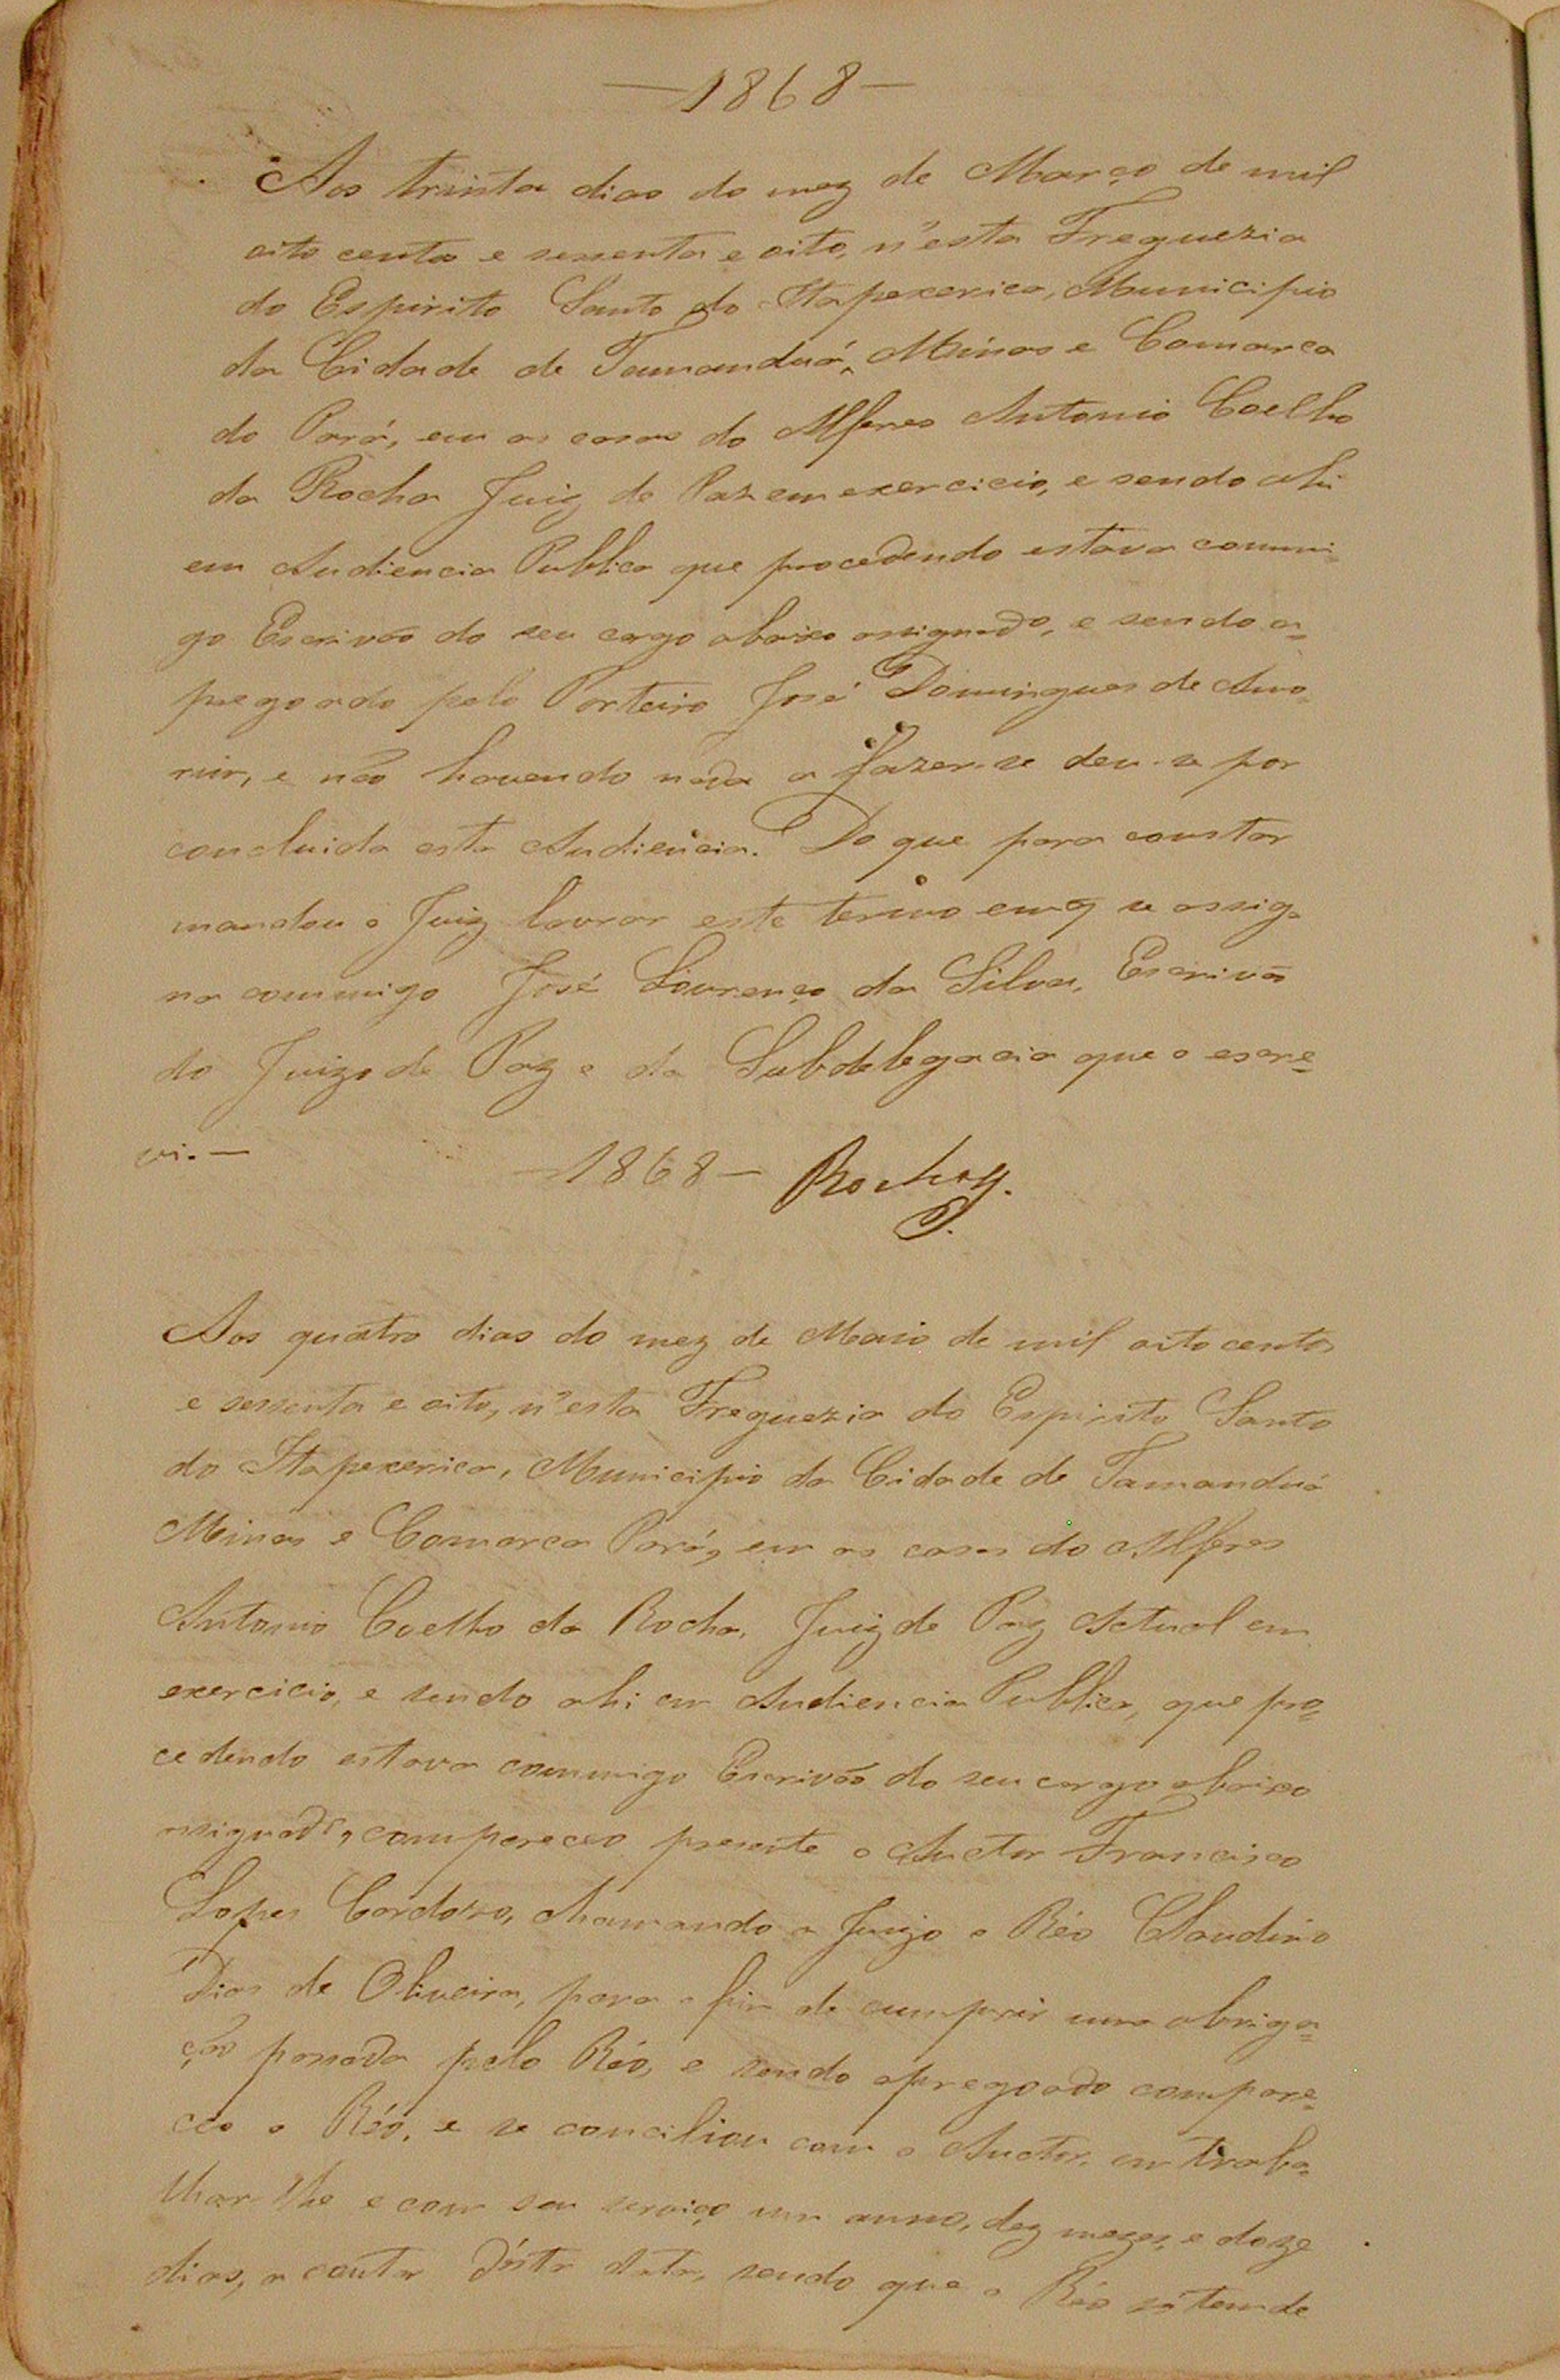 —1868—
Aos trinta dias do mez de Março de mil
oito centos e sessenta e oito, n'esta Freguezia
do Espirito Santo do Itapexerica, Municipio
da Cidade de Tamanduá, Minas e Comarca
do Pará, em as casas do Alferes Antonio Coelho
da Rocha Juiz de Paz em exercicio, e sendo ahi
em Audiencia Publica que procedendo estava commi-
go Escrivão do seu cargo abaixo assignado, e sendo a=
pregoado pelo Porteiro José Domingues de Amo-
rim, e não havendo nada a fazer-se deu-se por
concluida esta Audiencia. Do que para constar
mandou o Juiz lavrar este termo em q se assig-
na commigo José Lourenço da Silva, Escrivão
do Juizo de Paz e da Subdelegacia que o escre=
vi.—
—1868— Rocha
Aos quatro dias do mez de Maio de mil oito centos
e sessenta e oito, n'esta Freguezia do Espirito Santo
do Itapexerica, Municipio da Cidade de Tamanduá
Minas e Comarca Pará, em as casas do Alferes
Antonio Coelho da Rocha, Juiz de Paz Actual em
exercicio, e sendo ahi em Audiencia Publica, que pro=
cedendo estava commigo Escrivão do seu cargo abaixo
assignado, compareceo presente o Auctor Francisco
Lopes Cardozo, chamando a Juizo o Réo Claudino
Dias de Oliveira, para o fim de cumprir uma obriga=
ção passada pelo Réo, e sendo apregoado compare=
ceo o Réo, e se conciliou com o Auctor, em traba-
lhar-lhe e com seu serviço um anno, dez mezes, e doze
dias, a contar d'esta data, sendo que o Réo só tem de